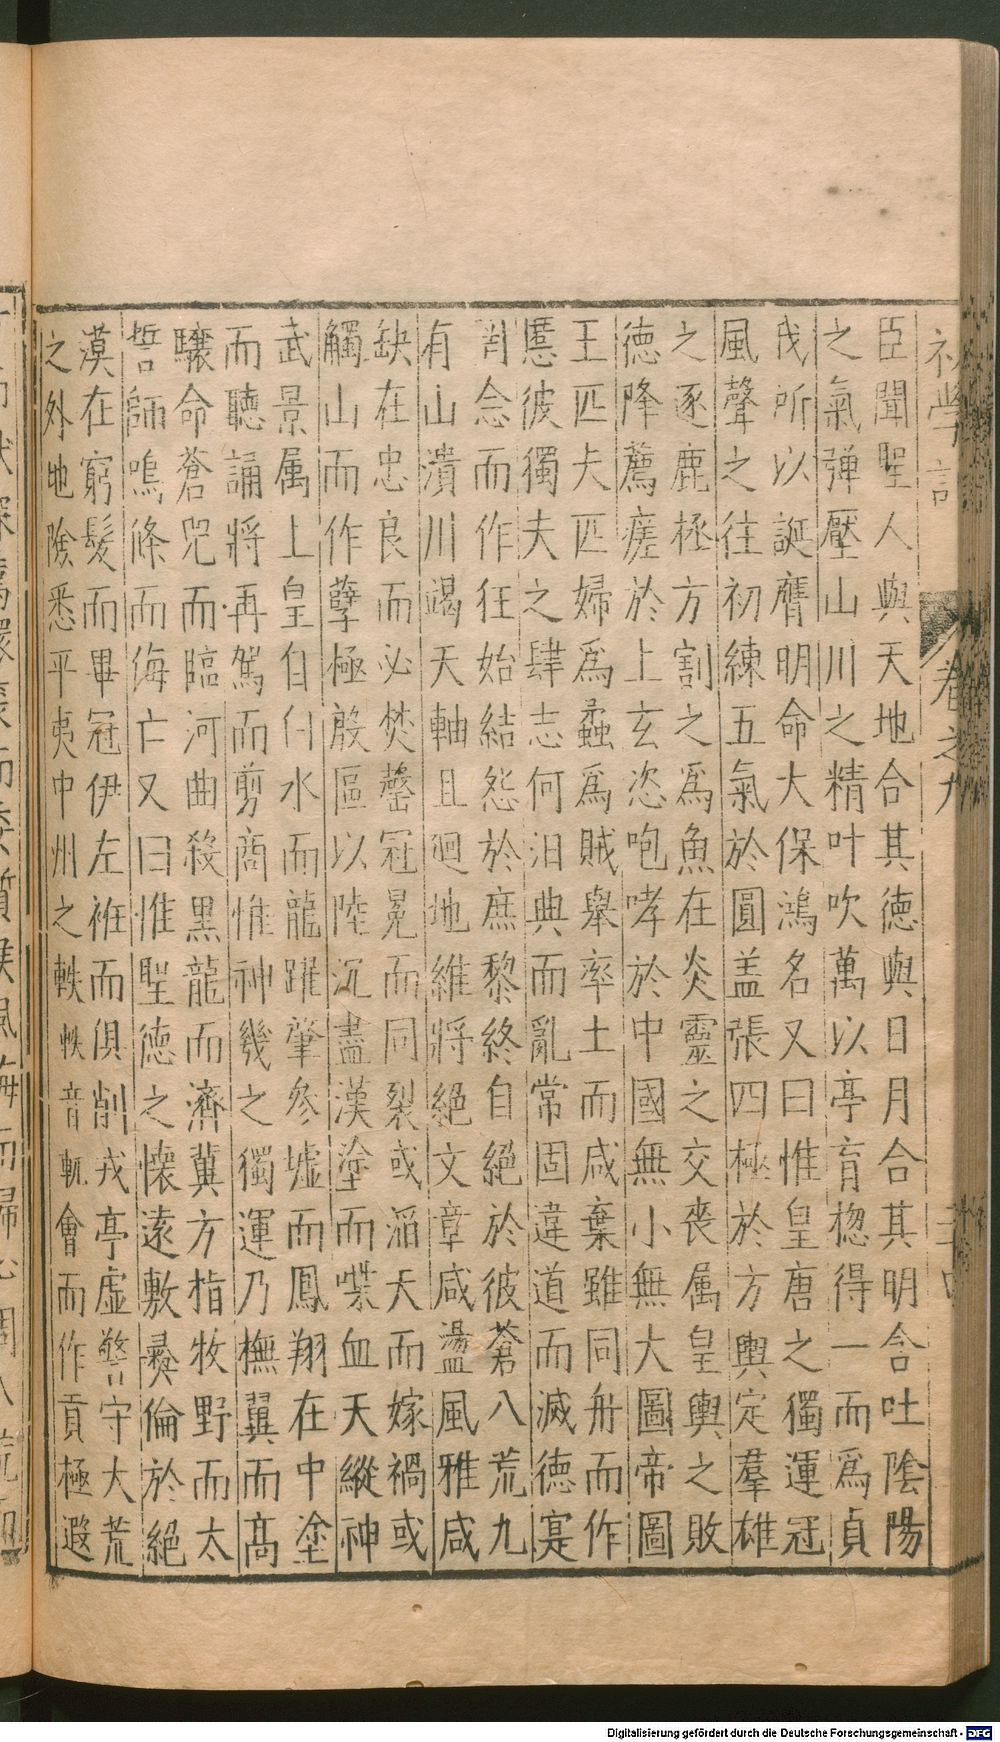 初學記 卷之九
臣聞聖人與天地合其德與日月合其明含吐陰陽
之氣彈壓山川之精叶吹萬以亭育揔得一而爲貞
茂所以誕膺明命大保鴻名又曰惟皇唐之獨運冠
風聲之往初練五氣於圓盖張四極於方輿定羣雄
之逐鹿極方割之爲魚在炎靈之交喪属皇輿之敗
德降薦瘥於上玄恣咆哮於中國無小無大圖帝圖
王匹夫匹婦爲蟊爲賊舉率土而咸棄雖同舟而作
慝彼獨夫之肆志何汩典而亂常固違道而滅德寔
罔念而作狂始結怨於庶黎終自絕於彼蒼八荒九
有山潰川竭天軸且廻地維將絕文章咸盪風雅咸
缺在忠良而必焚罄冠冕而同裂或滔天而嫁禍或
觸山而作孽極殷區以陸沉盡漢塗而喋血天縱神
武景属上皇自仆水而龍躍肇參墟而鳳翔在中塗
而聽誦將再駕而剪商惟神幾之獨運乃撫翼而高
驤命蒼兕而臨河曲殺黑龍而濟冀方指牧野而太
誓師鳴條而侮亡又曰惟聖德之懷遠敷彝倫於絕
漠在窮髮而畢冠伊左袵而俱削戎亭虛警守大荒
之外地險悉平夷中州之軼軼音軏會而作貢極遐
Digitalisierung gefördert durch die Deutsche Forschungsgemeinschaft - DFG